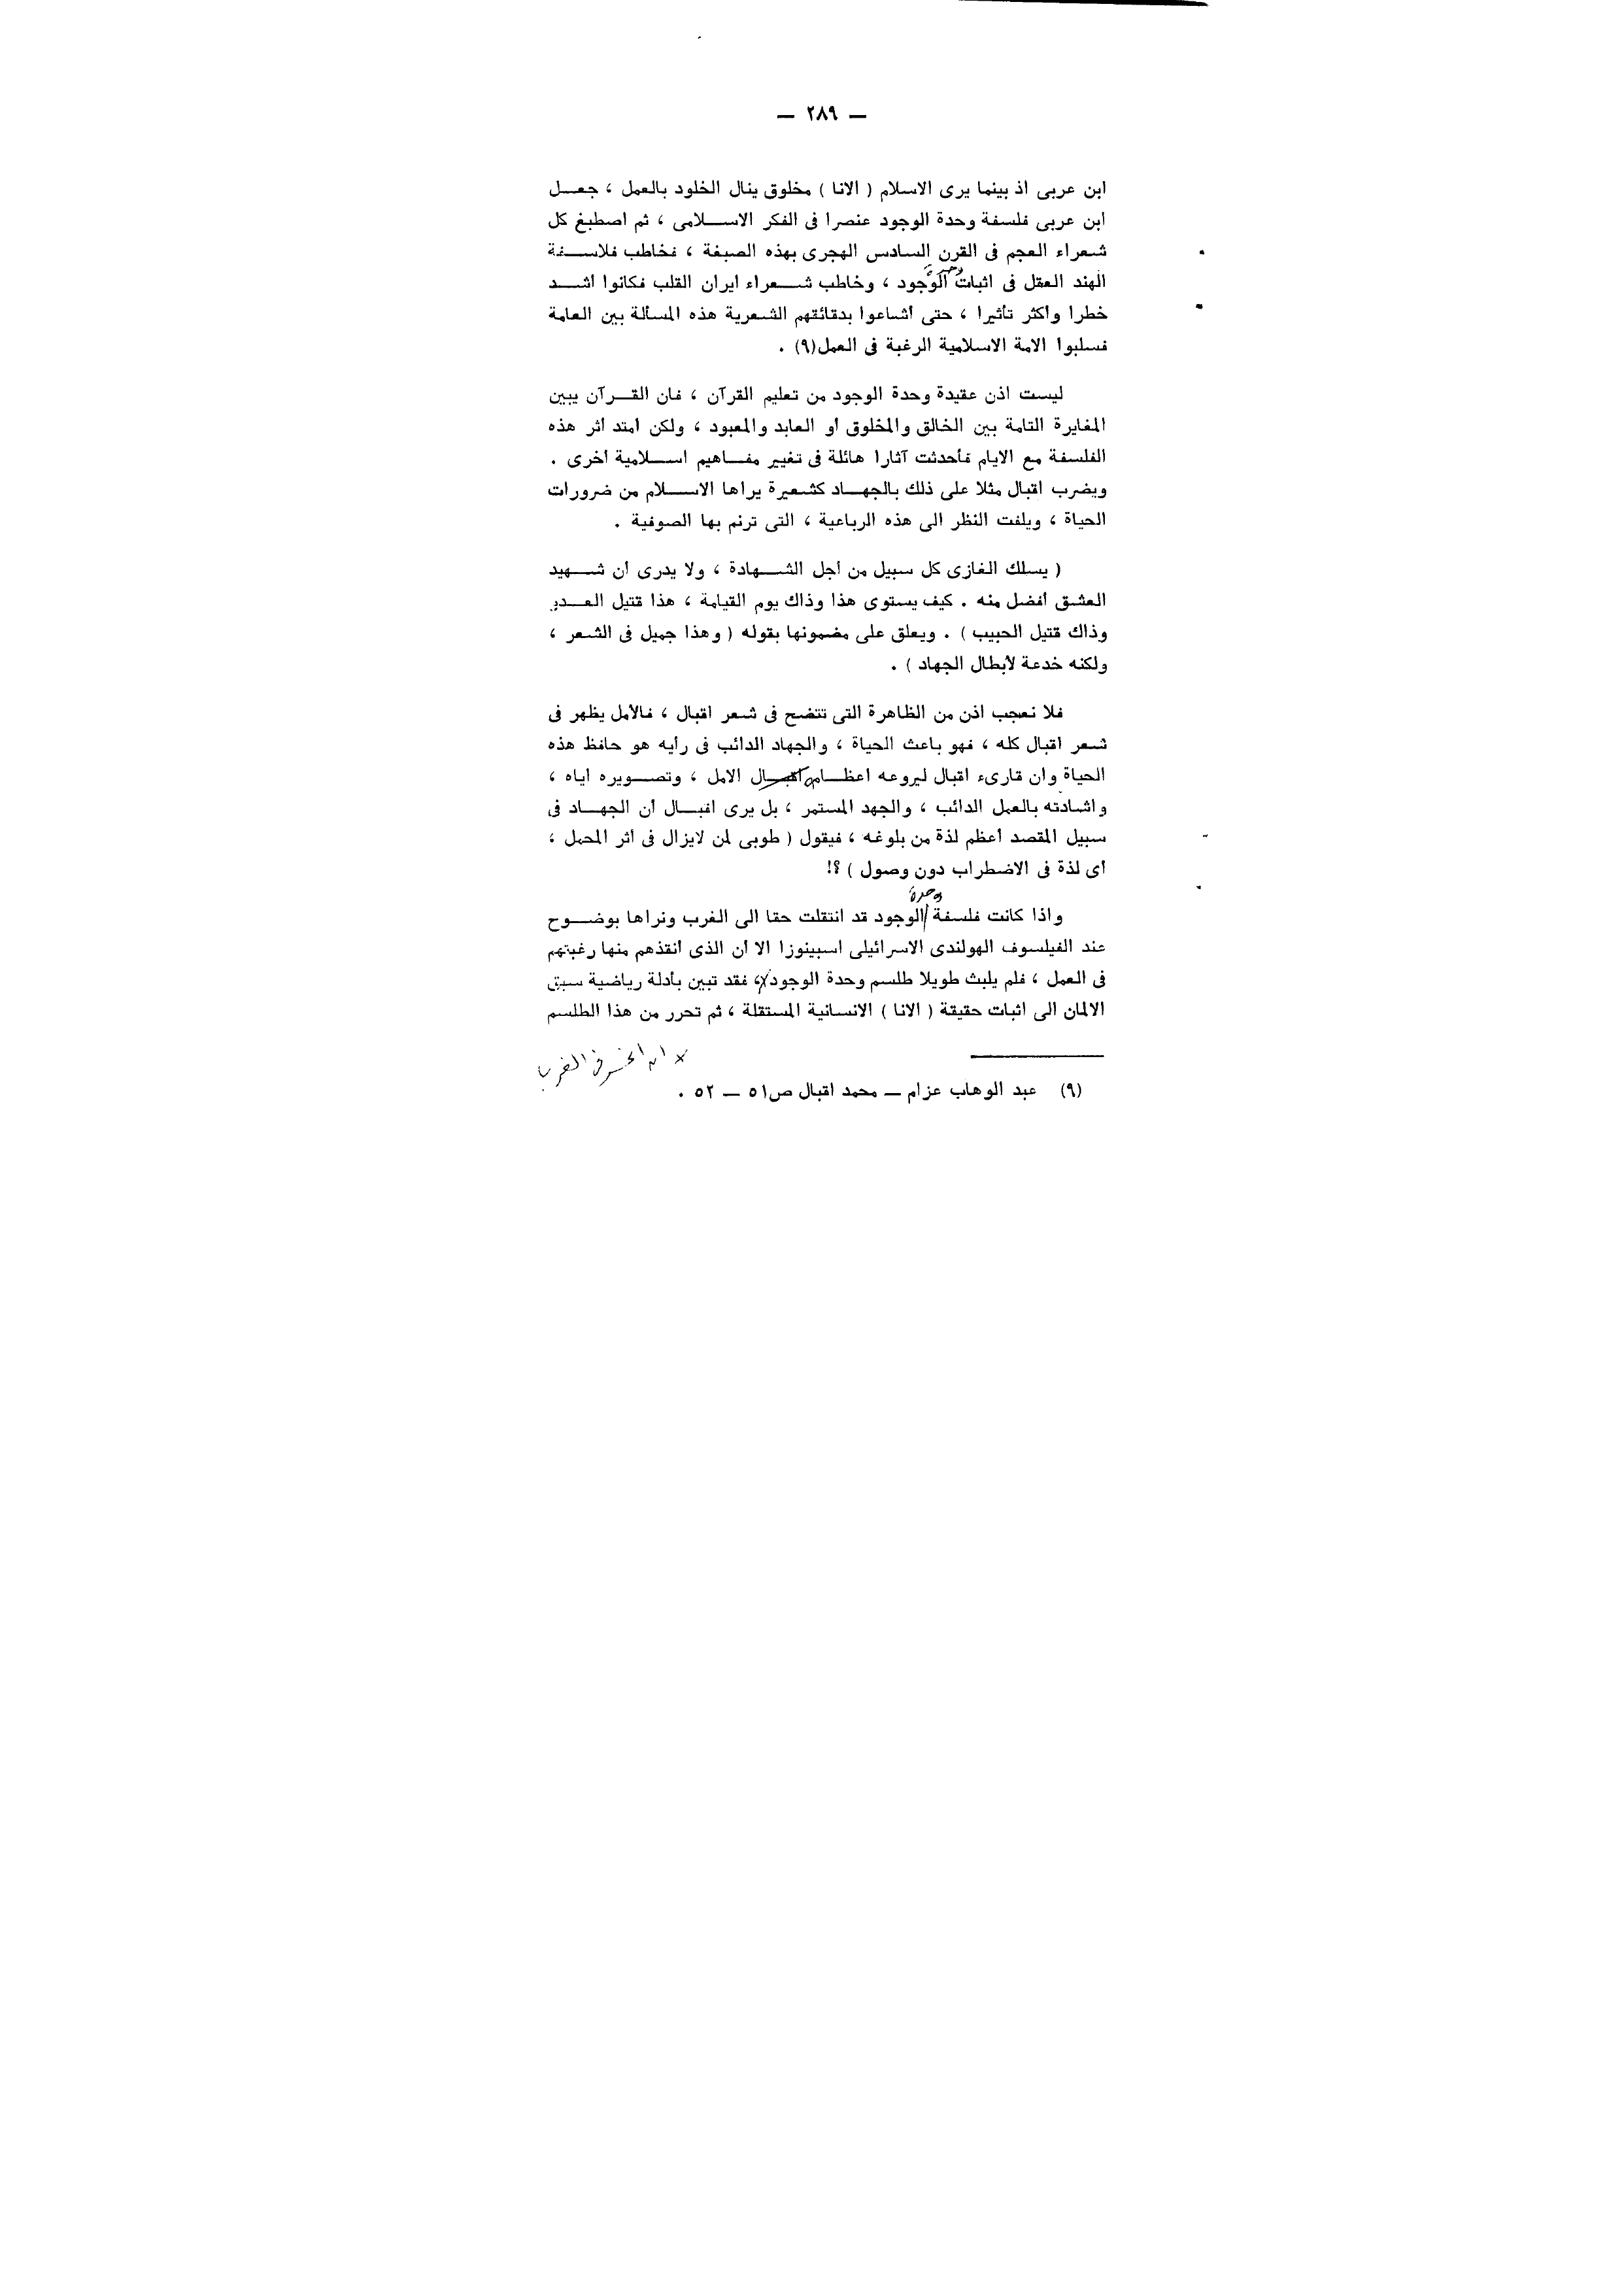 — ٢٨٩ —
ابن عربى اذ بينما يرى الاسلام ( الانا ) مخلوق ينال الخلود بالعمل ، جعــل
ابن عربى فلسفة وحدة الوجود عنصرا فى الفكر الاســـلامى ، ثم اصطبغ كل
شعراء العجم فى القرن السادس الهجرى بهذه الصبغة ، فخاطب فلاســـفة
الهند العقل فى اثبات وحدة الوجود ، وخاطب شـــعراء ايران القلب فكانوا اشـــد
خطرا وأكثر تأثيرا ، حتى أشاعوا بدقائقهم الشعرية هذه المسألة بين العامة
فسلبوا الامة الاسلامية الرغبة فى العمل(٩) .
ليست اذن عقيدة وحدة الوجود من تعليم القرآن ، فان القـــرآن يبين
المغايرة التامة بين الخالق والمخلوق أو العابد والمعبود ، ولكن امتد أثر هذه
الفلسفة مع الايام فأحدثت آثارا هائلة فى تغيير مفــاهيم اســـلامية أخرى .
ويضرب اقبال مثلا على ذلك بالجهــاد كشعيرة يراها الاســـلام من ضرورات
الحياة ، ويلفت النظر الى هذه الرباعية ، التى ترنم بها الصوفية .
( يسلك الغازى كل سبيل من أجل الشـــهادة ، ولا يدرى أن شـــهيد
العشق أفضل منه . كيف يستوى هذا وذاك يوم القيامة ، هذا قتيل العــدو
وذاك قتيل الحبيب ) . ويعلق على مضمونها بقوله ( وهذا جميل فى الشعر ،
ولكنه خدعة لأبطال الجهاد ) .
فلا نعجب اذن من الظاهرة التى تتضح فى شعر اقبال ، فالأمل يظهر فى
شعر اقبال كله ، فهو باعث الحياة ، والجهاد الدائب فى رأيه هو حافظ هذه
الحياة وان قارىء اقبال ليروعه اعظــام اقبــال الامل ، وتصـــويره اياه ،
واشادته بالعمل الدائب ، والجهد المستمر ، بل يرى اقبــال أن الجهــاد فى
سبيل المقصد أعظم لذة من بلوغه ، فيقول ( طوبى لمن لايزال فى أثر المحمل ،
أى لذة فى الاضطراب دون وصول ) ؟!
واذا كانت فلسفة وحدة الوجود قد انتقلت حقا الى الغرب ونراها بوضـــوح
عند الفيلسوف الهولندى الاسرائيلى اسبينوزا الا أن الذى أنقذهم منها رغبتهم
فى العمل ، فلم يلبث طويلا طلسم وحدة الوجود ، فقد تبين بأدلة رياضية سبق
الالمان الى اثبات حقيقة ( الانا ) الانسانية المستقلة ، ثم تحرر من هذا الطلسم
فى الغرب
(٩) عبد الوهاب عزام — محمد اقبال ص٥١ — ٥٢ .